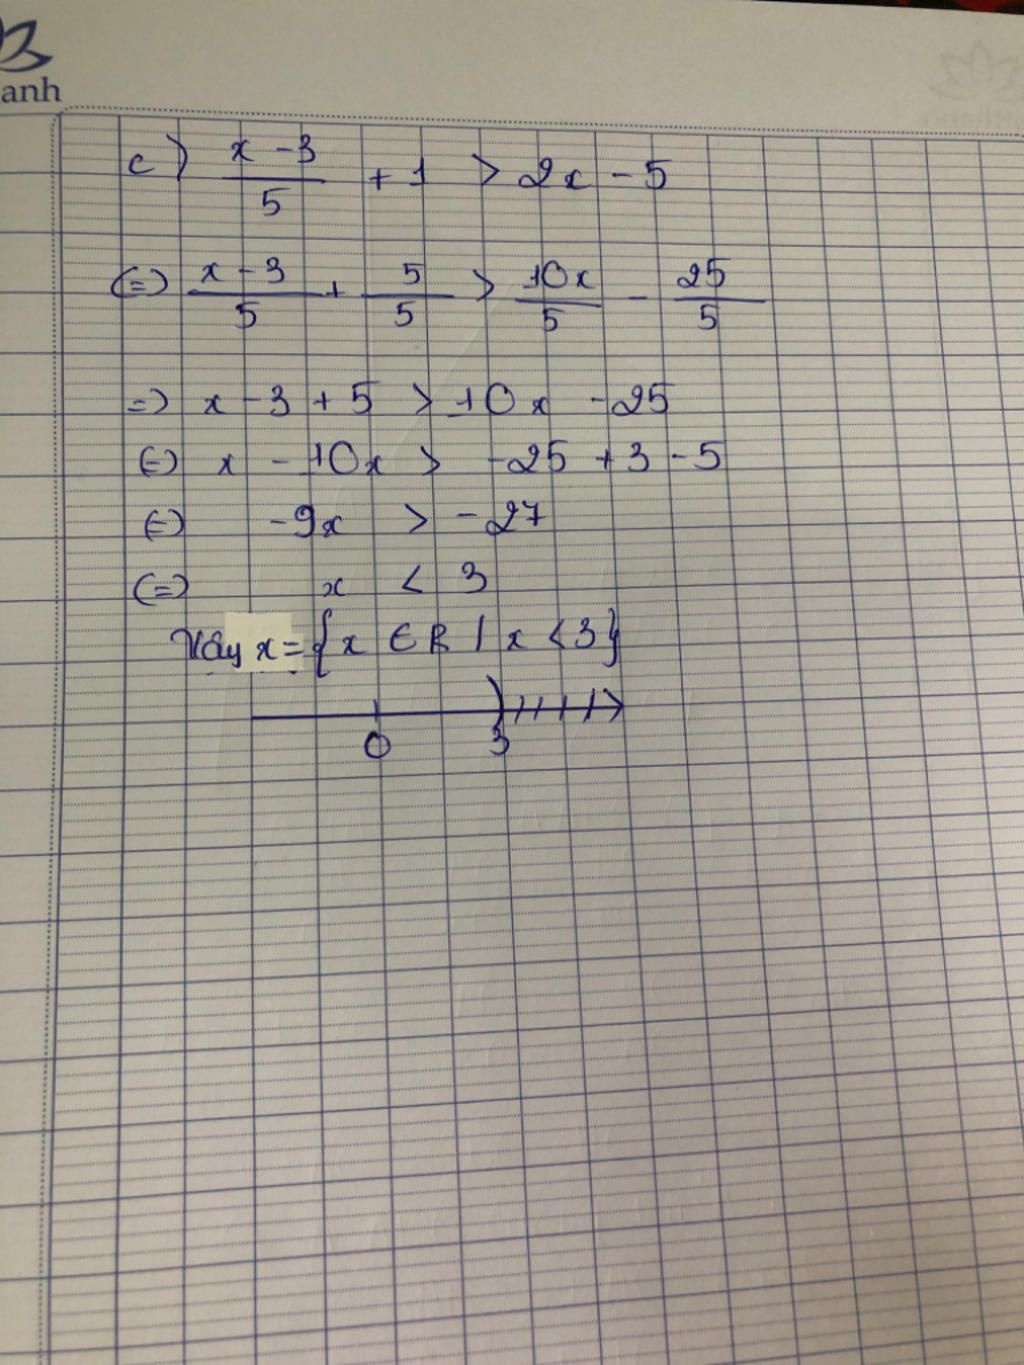 anh
c) \frac{x-3}{5} + 1 > 2x - 5
(=) \frac{x-3}{5} + \frac{5}{5} > \frac{10x}{5} - \frac{25}{5}
=) x - 3 + 5 > 10x - 25
(=) x - 10x > -25 + 3 - 5
(=) -9x > -27
(=) x < 3
Vậy x = {x ∈ R | x < 3}
0 3